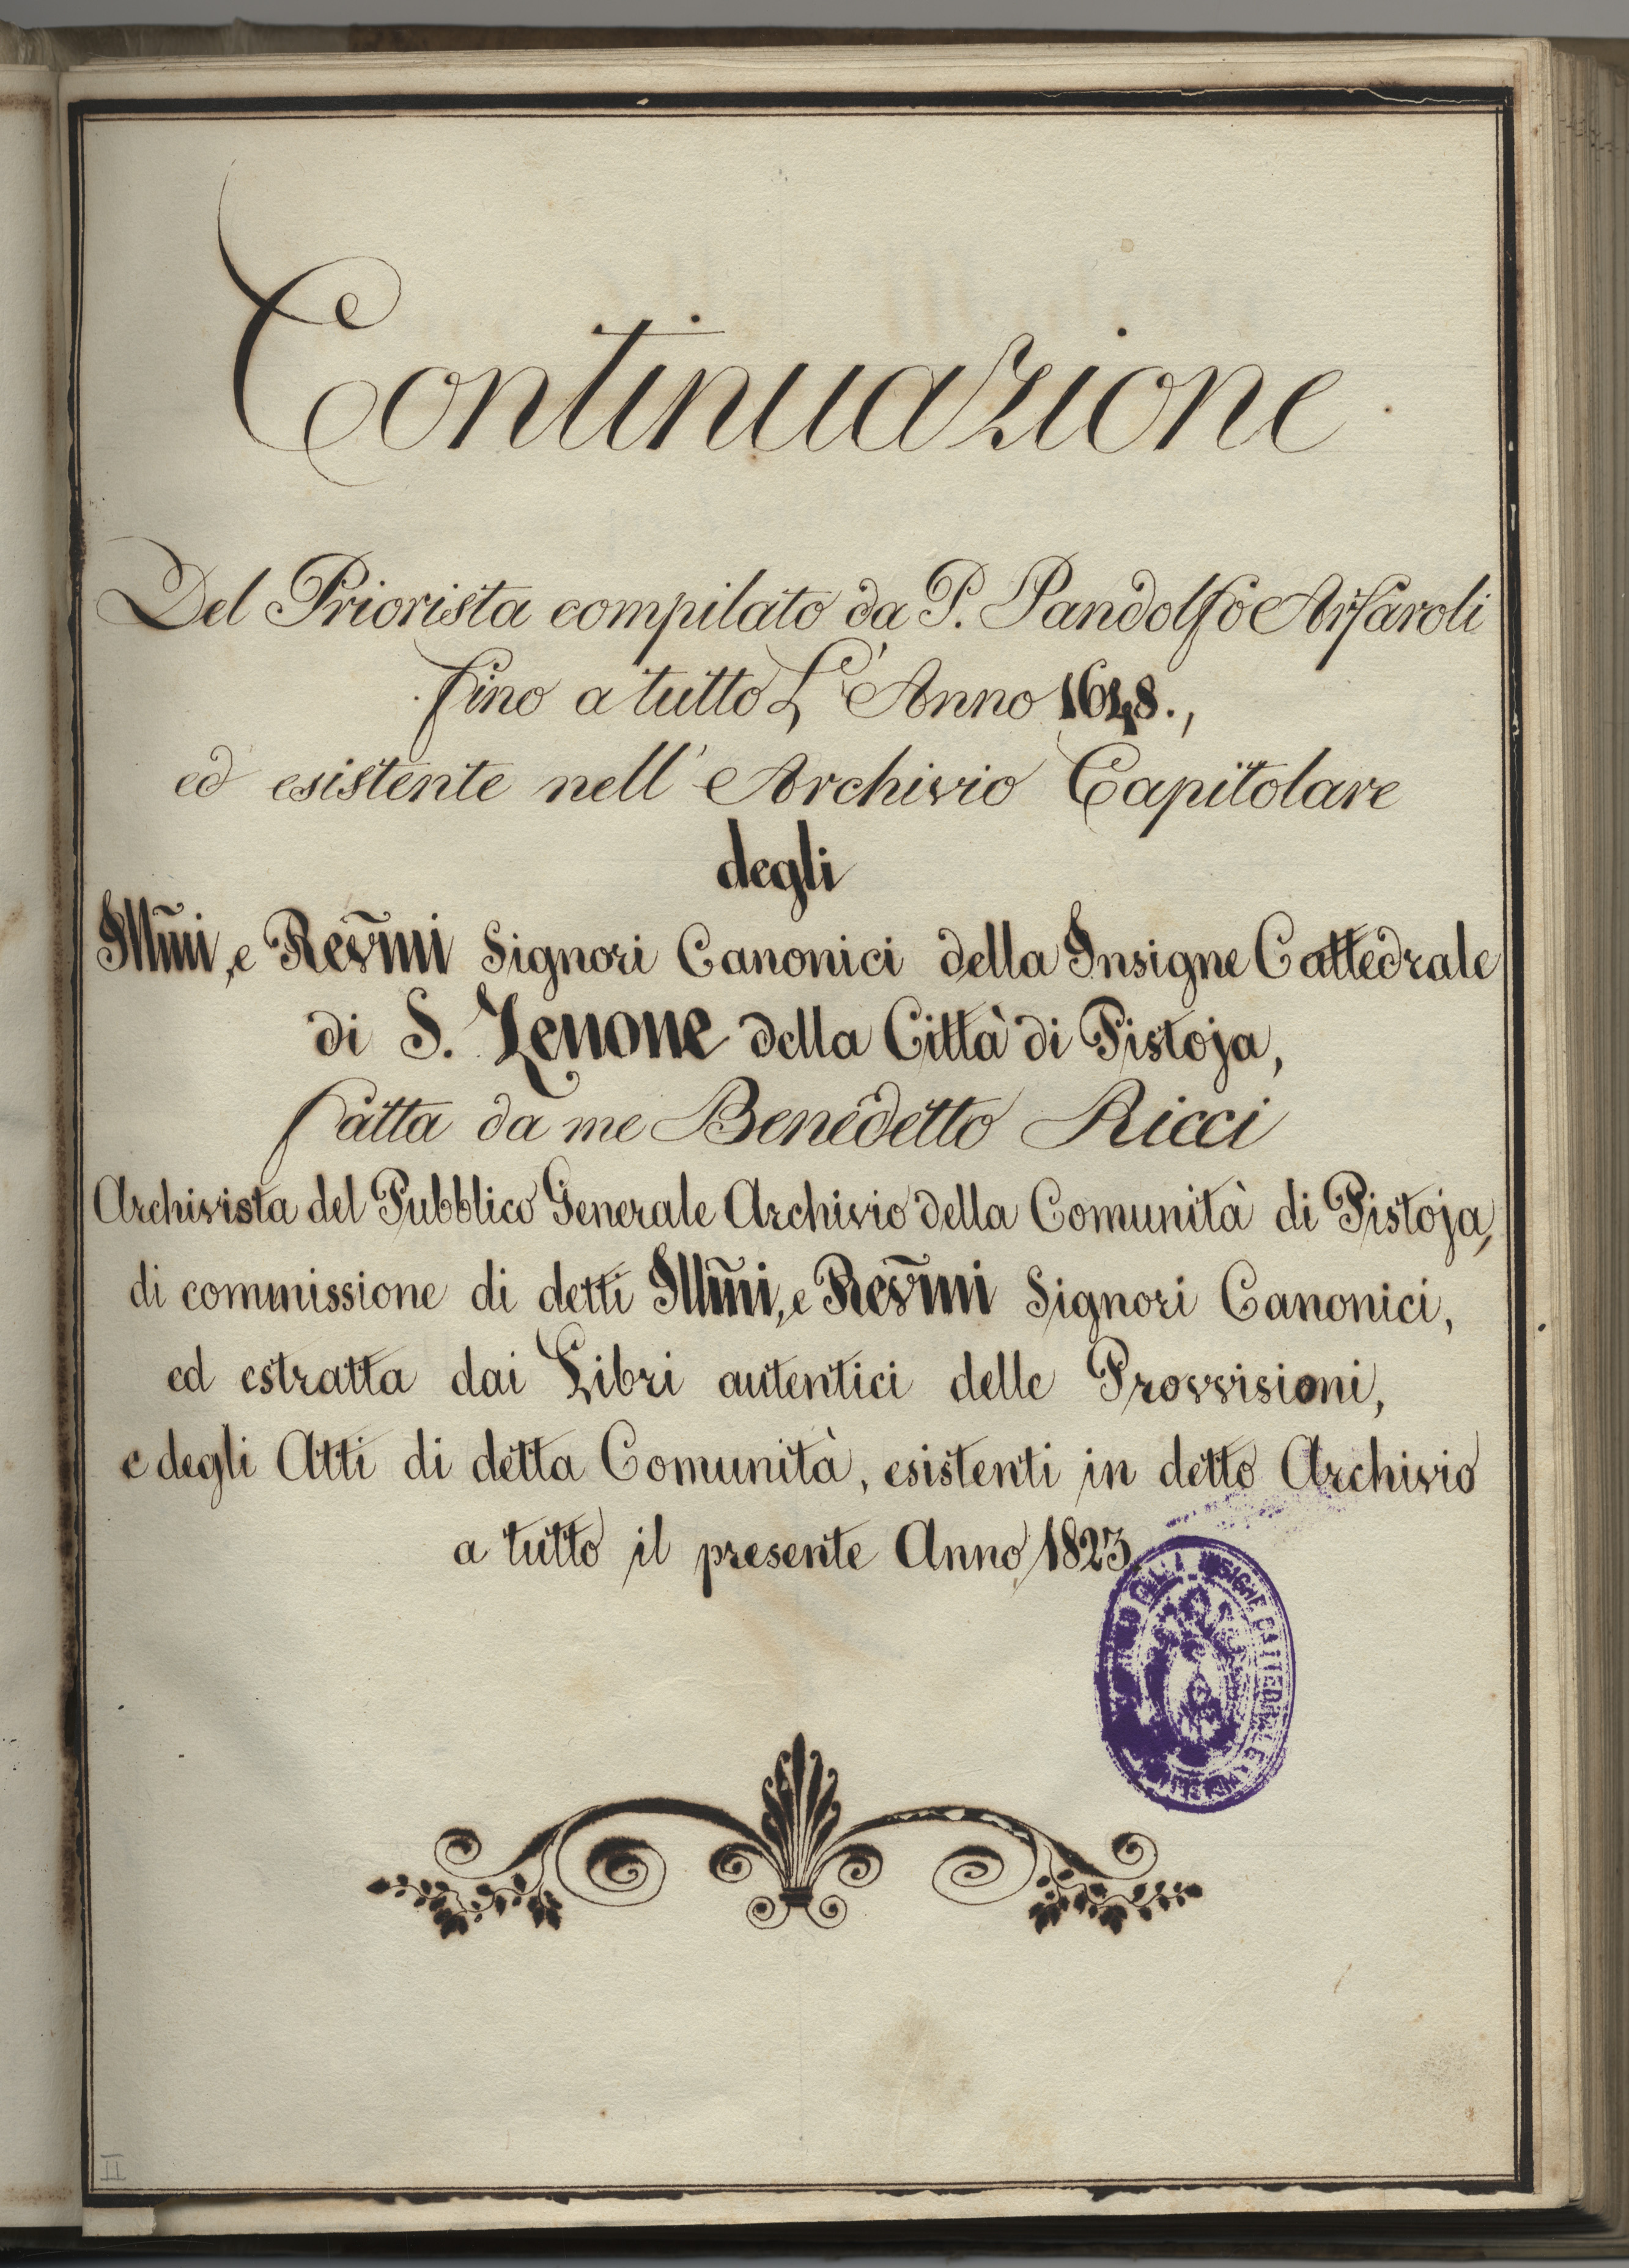 Continuazione
Del Priorista compilato da P. Pandolfo Arfaroli
fino a tutto L'Anno 1648.,
ed esistente nell' Archivio Capitolare
degli
Illm̃i, e Revm̃i Signori Canonici della Insigne Cattedrale
di S. Zenone della Città di Pistoja,
fatta da me Benedetto Ricci
Archivista del Pubblico Generale Archivio della Comunità di Pistoja,
di commissione di detti Illm̃i, e Revm̃i Signori Canonici,
ed estratta dai Libri autentici delle Provvisioni,
e degli Atti di detta Comunità, esistenti in detto Archivio
a tutto il presente Anno 1823.
CATTEDRALE
II